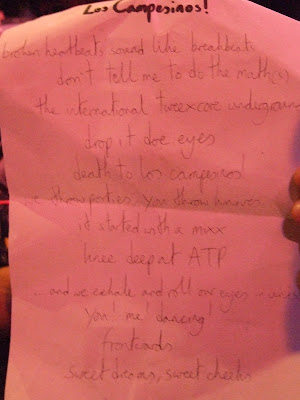 Los Campesinos!
broken heartbeats sound like breakbeat
don't tell me to do the math(s)
the international tweexcore undergroun
drop it doe eyes
death to los campesinos!
we throw parties, you throw knives
it started with a mixx
knee deep at ATP
...and we exhale and roll our eyes in unis
you! me! dancing!
frontwards
sweet dreams, sweet cheeks